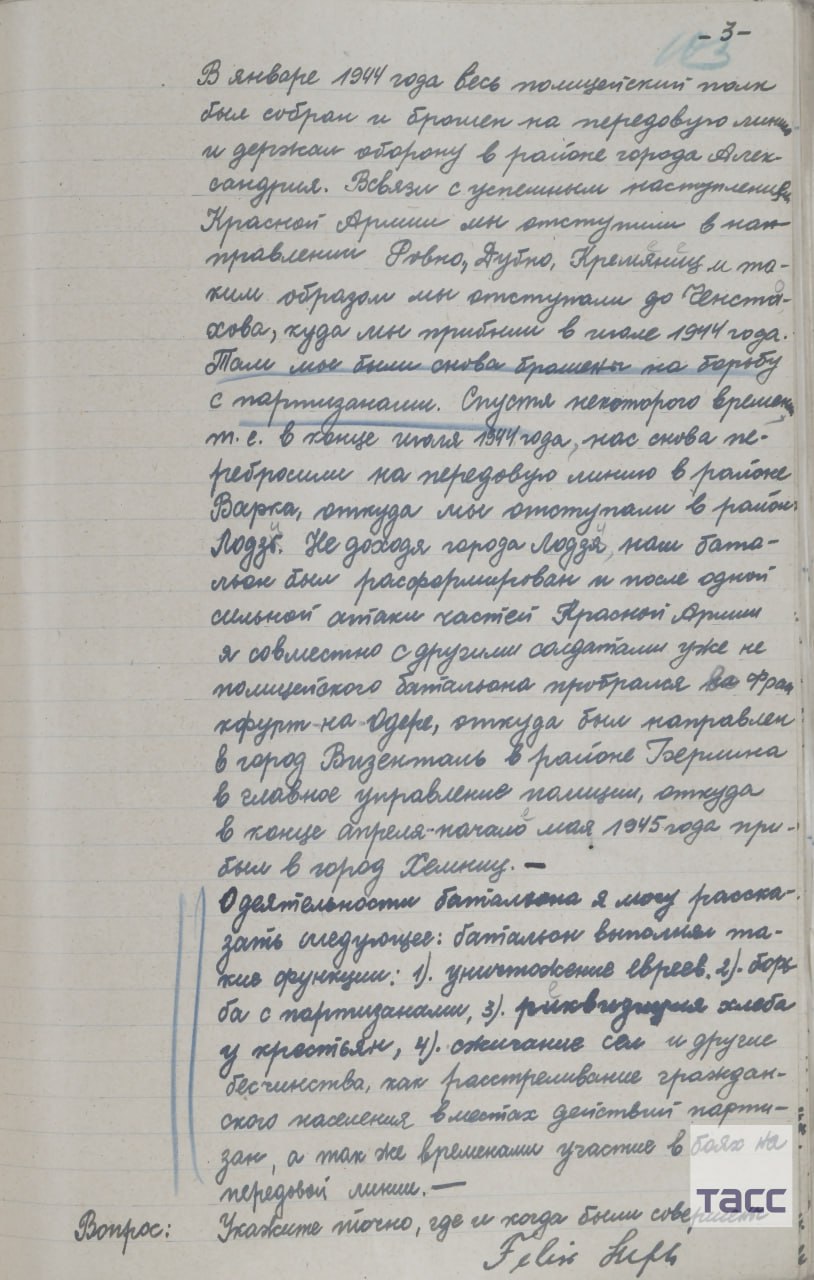 -3-
В январе 1944 года весь полицейский полк
был собран и брошен на передовую линию
и держал оборону в районе города Алек-
сандрия. Всвязи с успешным наступлением
Красной Армии мы отступили в нап-
правлении Ровно, Дубно, Кременец и та-
ким образом мы отступали до Ченсто-
хова, куда мы прибыли в июле 1944 года.
Там мы были снова брошены на борьбу
с партизанами. Спустя некоторого времени,
т.е. в конце июля 1944 года, нас снова пе-
ребросили на передовую линию в районе
Варка, откуда мы отступали в район
Лодзи. Не доходя города Лодзи, наш бата-
льон был расформирован и после одной
сильной атаки частей Красной Армии
я совместно с другими солдатами уже не
полицейского батальона пробрался Фран
кфурт-на Одере, откуда был направлен
в город Визенталь в районе Берлина
в главное управление полиции, откуда
в конце апреля-начале мая 1945 года при-
был в город Хемниц. —
О деятельности батальона я могу расска-
зать следующее: батальон выполнял та-
кие функции: 1). уничтожение евреев, 2). борь
ба с партизанами, 3). реквизиция хлеба
у крестьян, 4). сжигание сел и другие
бесчинства, как расстреливание граждан-
ского населения в местах действий парти-
зан, а так же временами участие в боях на
передовой линии. —
Вопрос: Укажите точно, где и когда были совершены
Felix
ТАСС